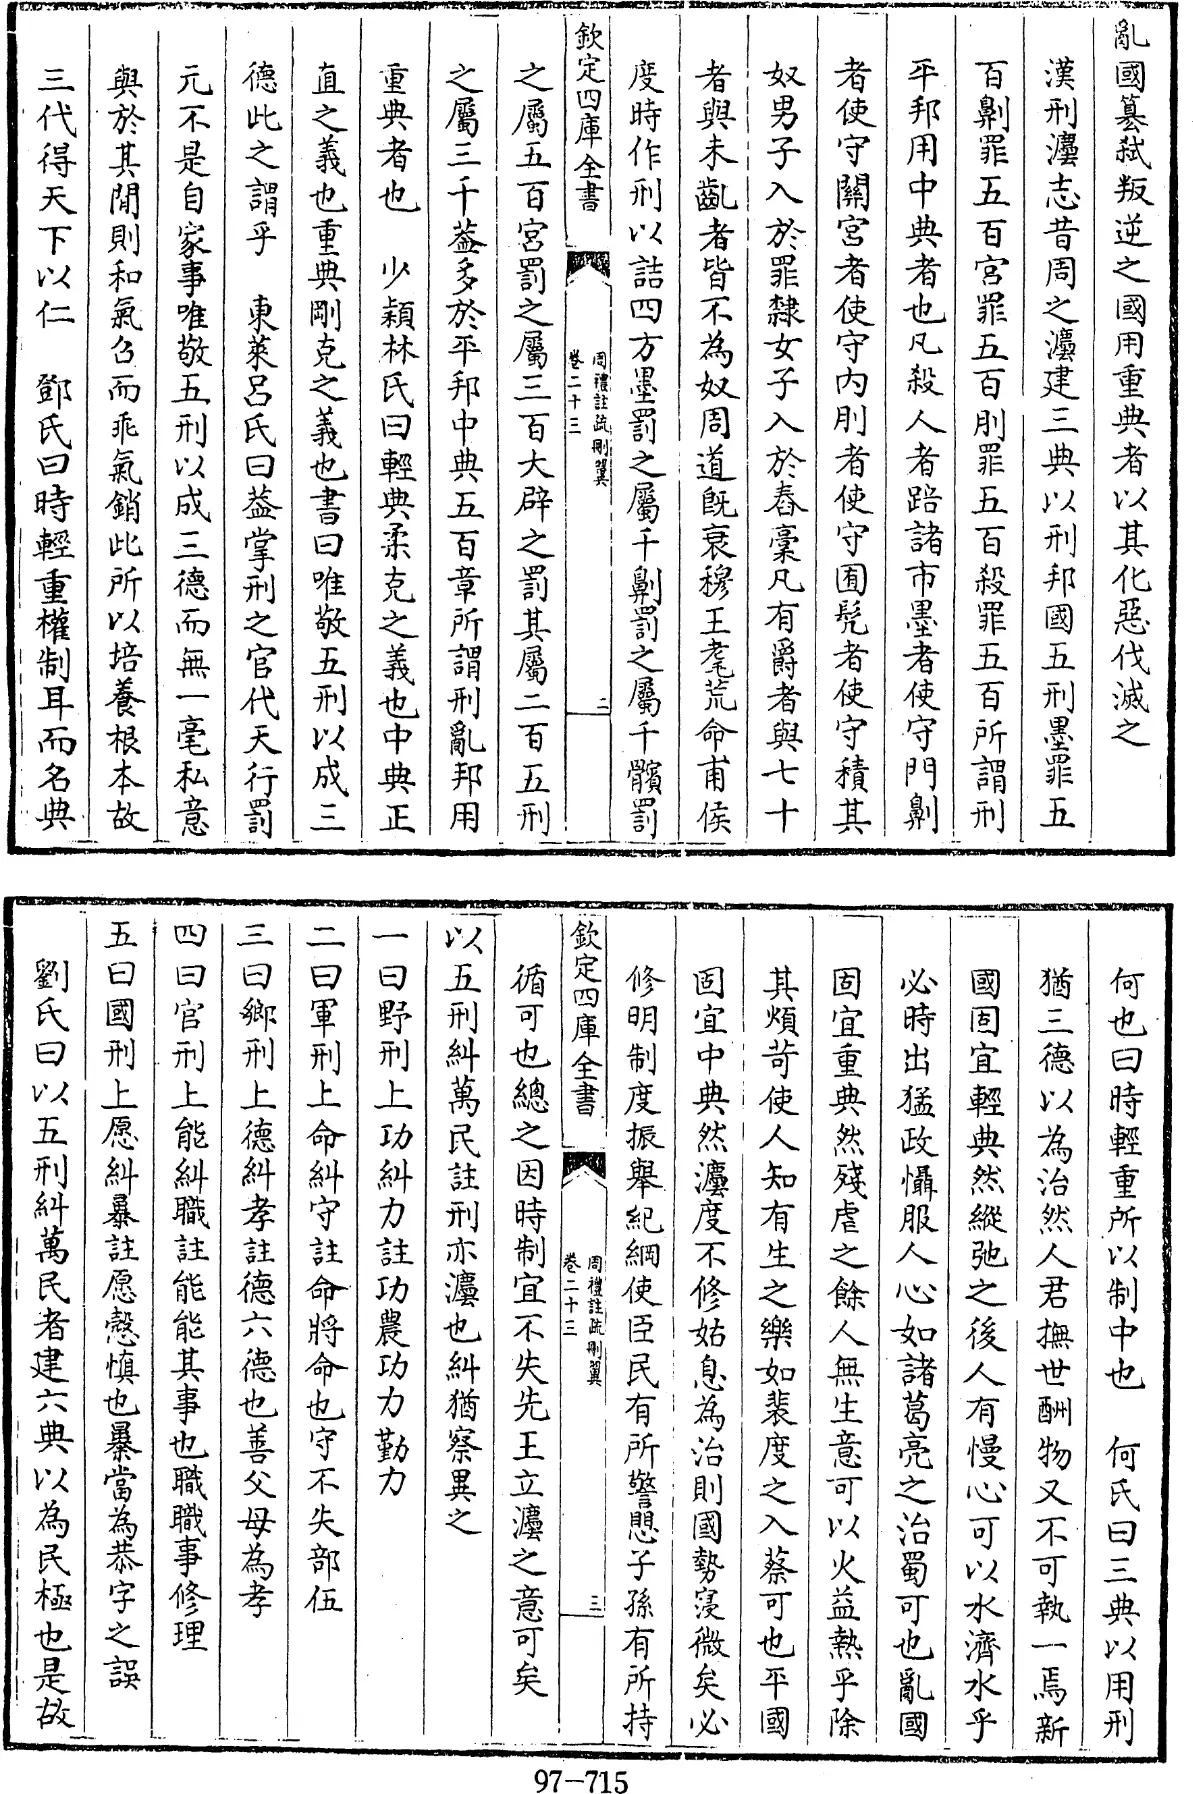 亂國篡弑叛逆之國用重典者以其化惡伐滅之
漢刑灋志昔周之灋建三典以刑邦國五刑墨罪五
百劓罪五百宮罪五百刖罪五百殺罪五百所謂刑
平邦用中典者也凡殺人者踣諸市墨者使守門劓
者使守關宮者使守内刖者使守囿髠者使守積其
奴男子入於罪隸女子入於舂槀凡有爵者與七十
者與未齓者皆不為奴周道既衰穆王耄荒命甫侯
度時作刑以詰四方墨罰之屬千劓罰之屬千髕罰
欽定四庫全書
周禮註疏刪翼
卷二十三
二
之屬五百宮罰之屬三百大辟之罰其屬二百五刑
之屬三千葢多於平邦中典五百章所謂刑亂邦用
重典者也 少頴林氏曰輕典柔克之義也中典正
直之義也重典剛克之義也書曰唯敬五刑以成三
德此之謂乎 東萊呂氏曰葢掌刑之官代天行罰
元不是自家事唯敬五刑以成三德而無一毫私意
與於其閒則和氣召而乖氣銷此所以培養根本故
三代得天下以仁 鄧氏曰時輕重權制耳而名典
何也曰時輕重所以制中也 何氏曰三典以用刑
猶三德以為治然人君撫世酬物又不可執一焉新
國固宜輕典然縱弛之後人有慢心可以水濟水乎
必時出猛政懾服人心如諸葛亮之治蜀可也亂國
固宜重典然殘虐之餘人無生意可以火益熱乎除
其煩苛使人知有生之樂如裴度之入蔡可也平國
固宜中典然灋度不修姑息為治則國勢寖微矣必
修明制度振舉紀綱使臣民有所警愳子孫有所持
欽定四庫全書
周禮註疏刪翼
卷二十三
三
循可也總之因時制宜不失先王立灋之意可矣
以五刑糾萬民註刑亦灋也糾猶察異之
一曰野刑上功糾力註功農功力勤力
二曰軍刑上命糾守註命將命也守不失部伍
三曰鄉刑上德糾孝註德六德也善父母為孝
四曰官刑上能糾職註能能其事也職職事修理
五曰國刑上愿糾暴註愿慤慎也暴當為恭字之誤
劉氏曰以五刑糾萬民者建六典以為民極也是故
97-715